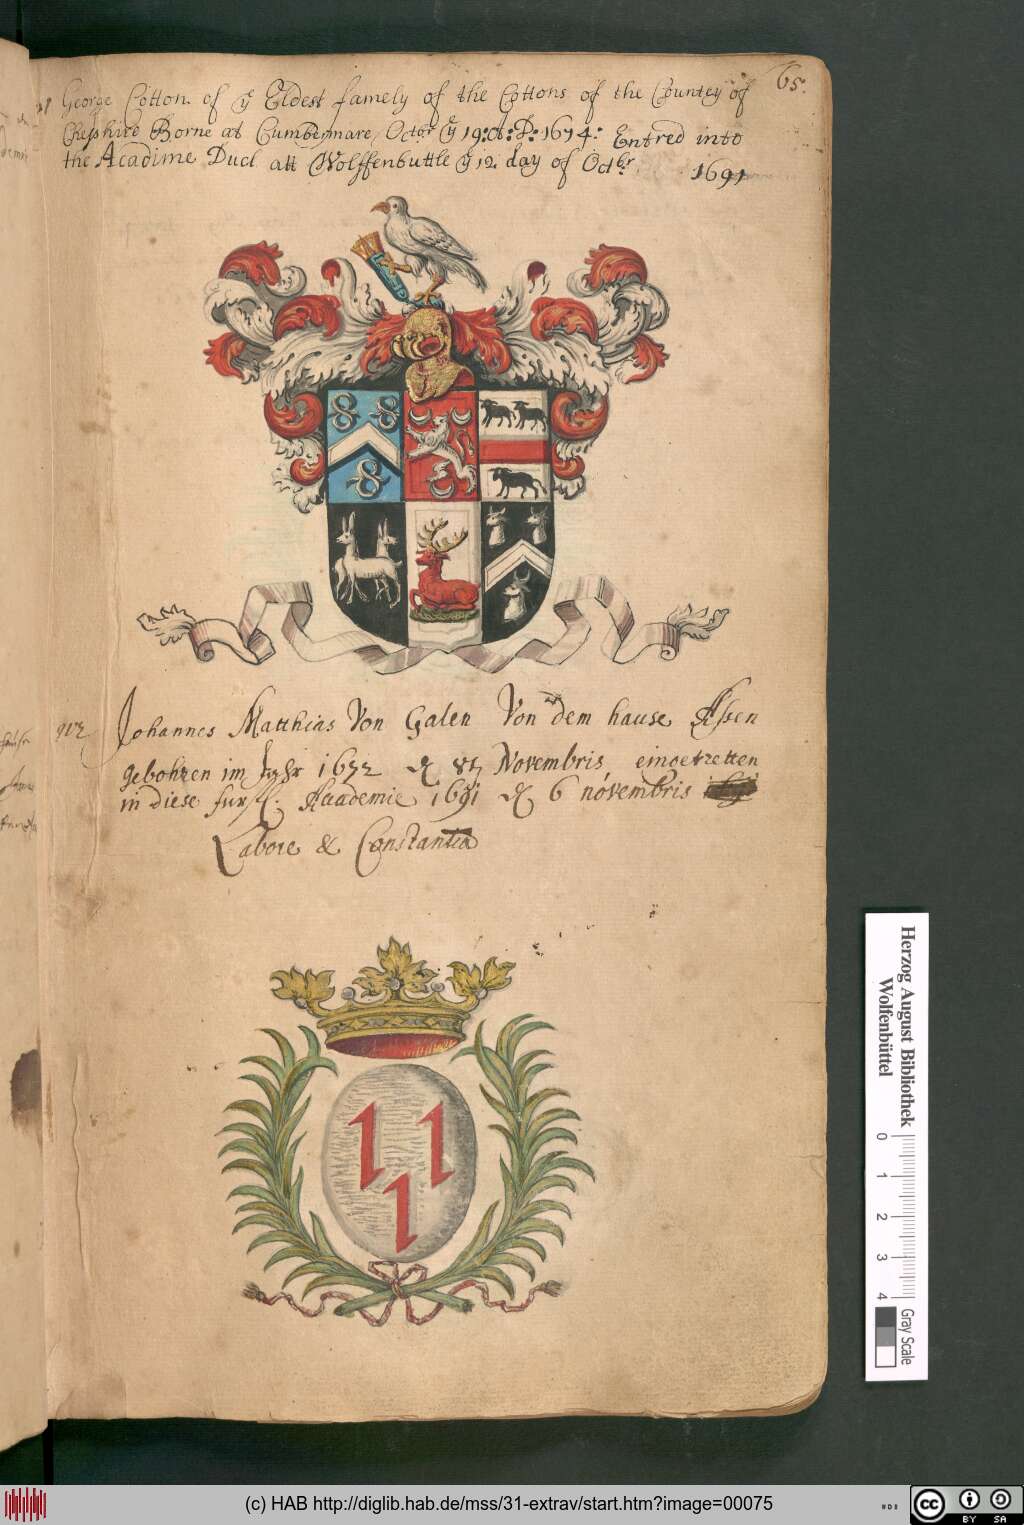 65.
George Cotton of ye Eldest famely of the Cottons of the Countey of
Cheshire Borne at Cumbermare Octbr ye 19: A: D: 1674: Entred into
the Acadime Ducl att Wolffenbuttle ye 12 day of Octbr 1691
Johannes Matthias Von Galen Von dem hause Assen
gebohren im Jahr 1672 Novembris eingetretten
in diese furstl. Academie 1691 6 novembris
Labore & Constantia
Herzog August Bibliothek
Wolfenbüttel
0 1 2 3 4
Gray Scale
(c) HAB http://diglib.hab.de/mss/31-extrav/start.htm?image=00075
cc BY SA